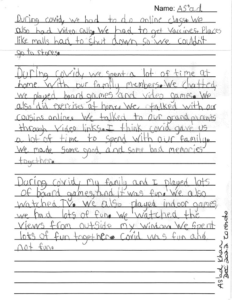 Name: Asad
During covid we had to do online class. We
also had video calls. We had to get vaccines. Places
like malls had to shut down so we couldn't
go to stores.
During covid we spent a lot of time at
home with our family members. We chatted,
we played board games and video games. We
also did exercise at home. We talked with our
cousins online. We talked to our grandparents
through video links. I think covid gave us
a lot of time to spend with our family.
We made some good and some bad memories
together.
During covid my family and I played lots
of board games, and it was fun. We also
watched TV. We also played indoor games
we had lots of fun. We watched the
views from outside my window. We spent
lots of fun together. Covid was fun and
not fun.
Khan
Dec 2022 Toronto